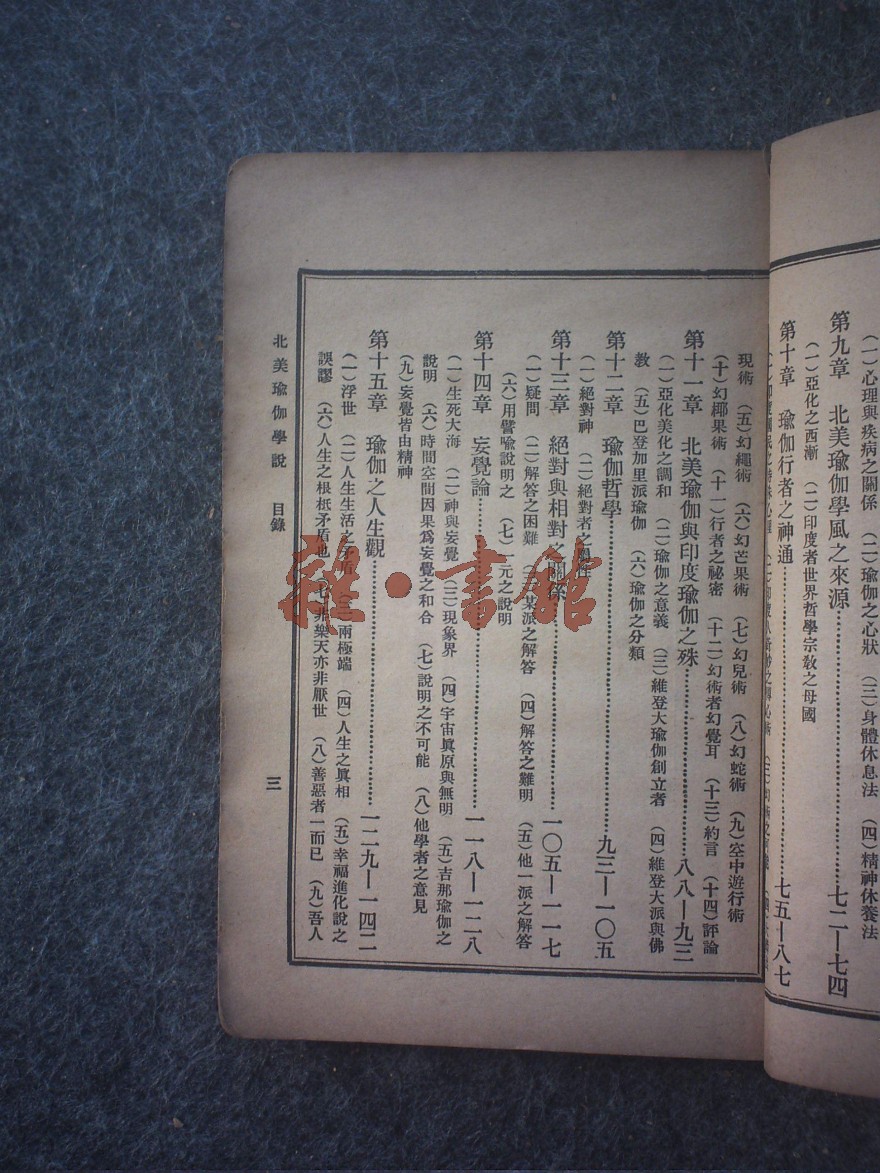 (一)心理與疾病之關係 (二)瑜伽之心狀 (三)身體休息法 (四)精神休養法
第九章 北美瑜伽學風之來源…………七二—七四
(一)亞化之西漸 (二)印度者世界哲學宗敎之母國
第十章 瑜伽行者之神通…………七五—八七
現術 (五)幻繩術 (六)幻芒果術 (七)幻兒術 (八)幻蛇術 (九)空中遊行術
(十)幻椰果術 (十一)行者之祕密 (十二)幻術者幻覺耳 (十三)約言 (十四)評論
第十一章 北美瑜伽與印度瑜伽之殊…………八八—九三
(一)亞化美化之調和 (二)瑜伽之意義 (三)維登大瑜伽創立者 (四)維登大派與佛
敎 (五)巴登加里派瑜伽 (六)瑜伽之分類
第十二章 瑜伽哲學…………九三—一〇五
(一)絕對神 (二)絕對者之屬性
第十三章 絕對與相對之關係…………一〇五—一一七
(一)疑問 (二)解答之困難 (三)某派之解答 (四)解答之難明 (五)他一派之解答
(六)用譬喩說明之 (七)一元之說明
第十四章 妄覺論…………一一八—一二八
(一)生死大海 (二)神與妄覺 (三)現象界 (四)宇宙眞原與無明 (五)吉那瑜伽之
說明 (六)時間空間因果爲妄覺之和合 (七)說明之不可能 (八)他學者之意見
(九)妄覺皆由精神
第十五章 瑜伽之人生觀…………一二九—一四二
(一)浮世 (二)人生生活之矛盾 (三)兩極端 (四)人生之眞相 (五)幸福進化說之
誤謬 (六)人生之根柢矛盾也 (七)非樂天亦非厭世 (八)善惡者一而已 (九)吾人
北美瑜伽學說 目錄 三
雜·書館